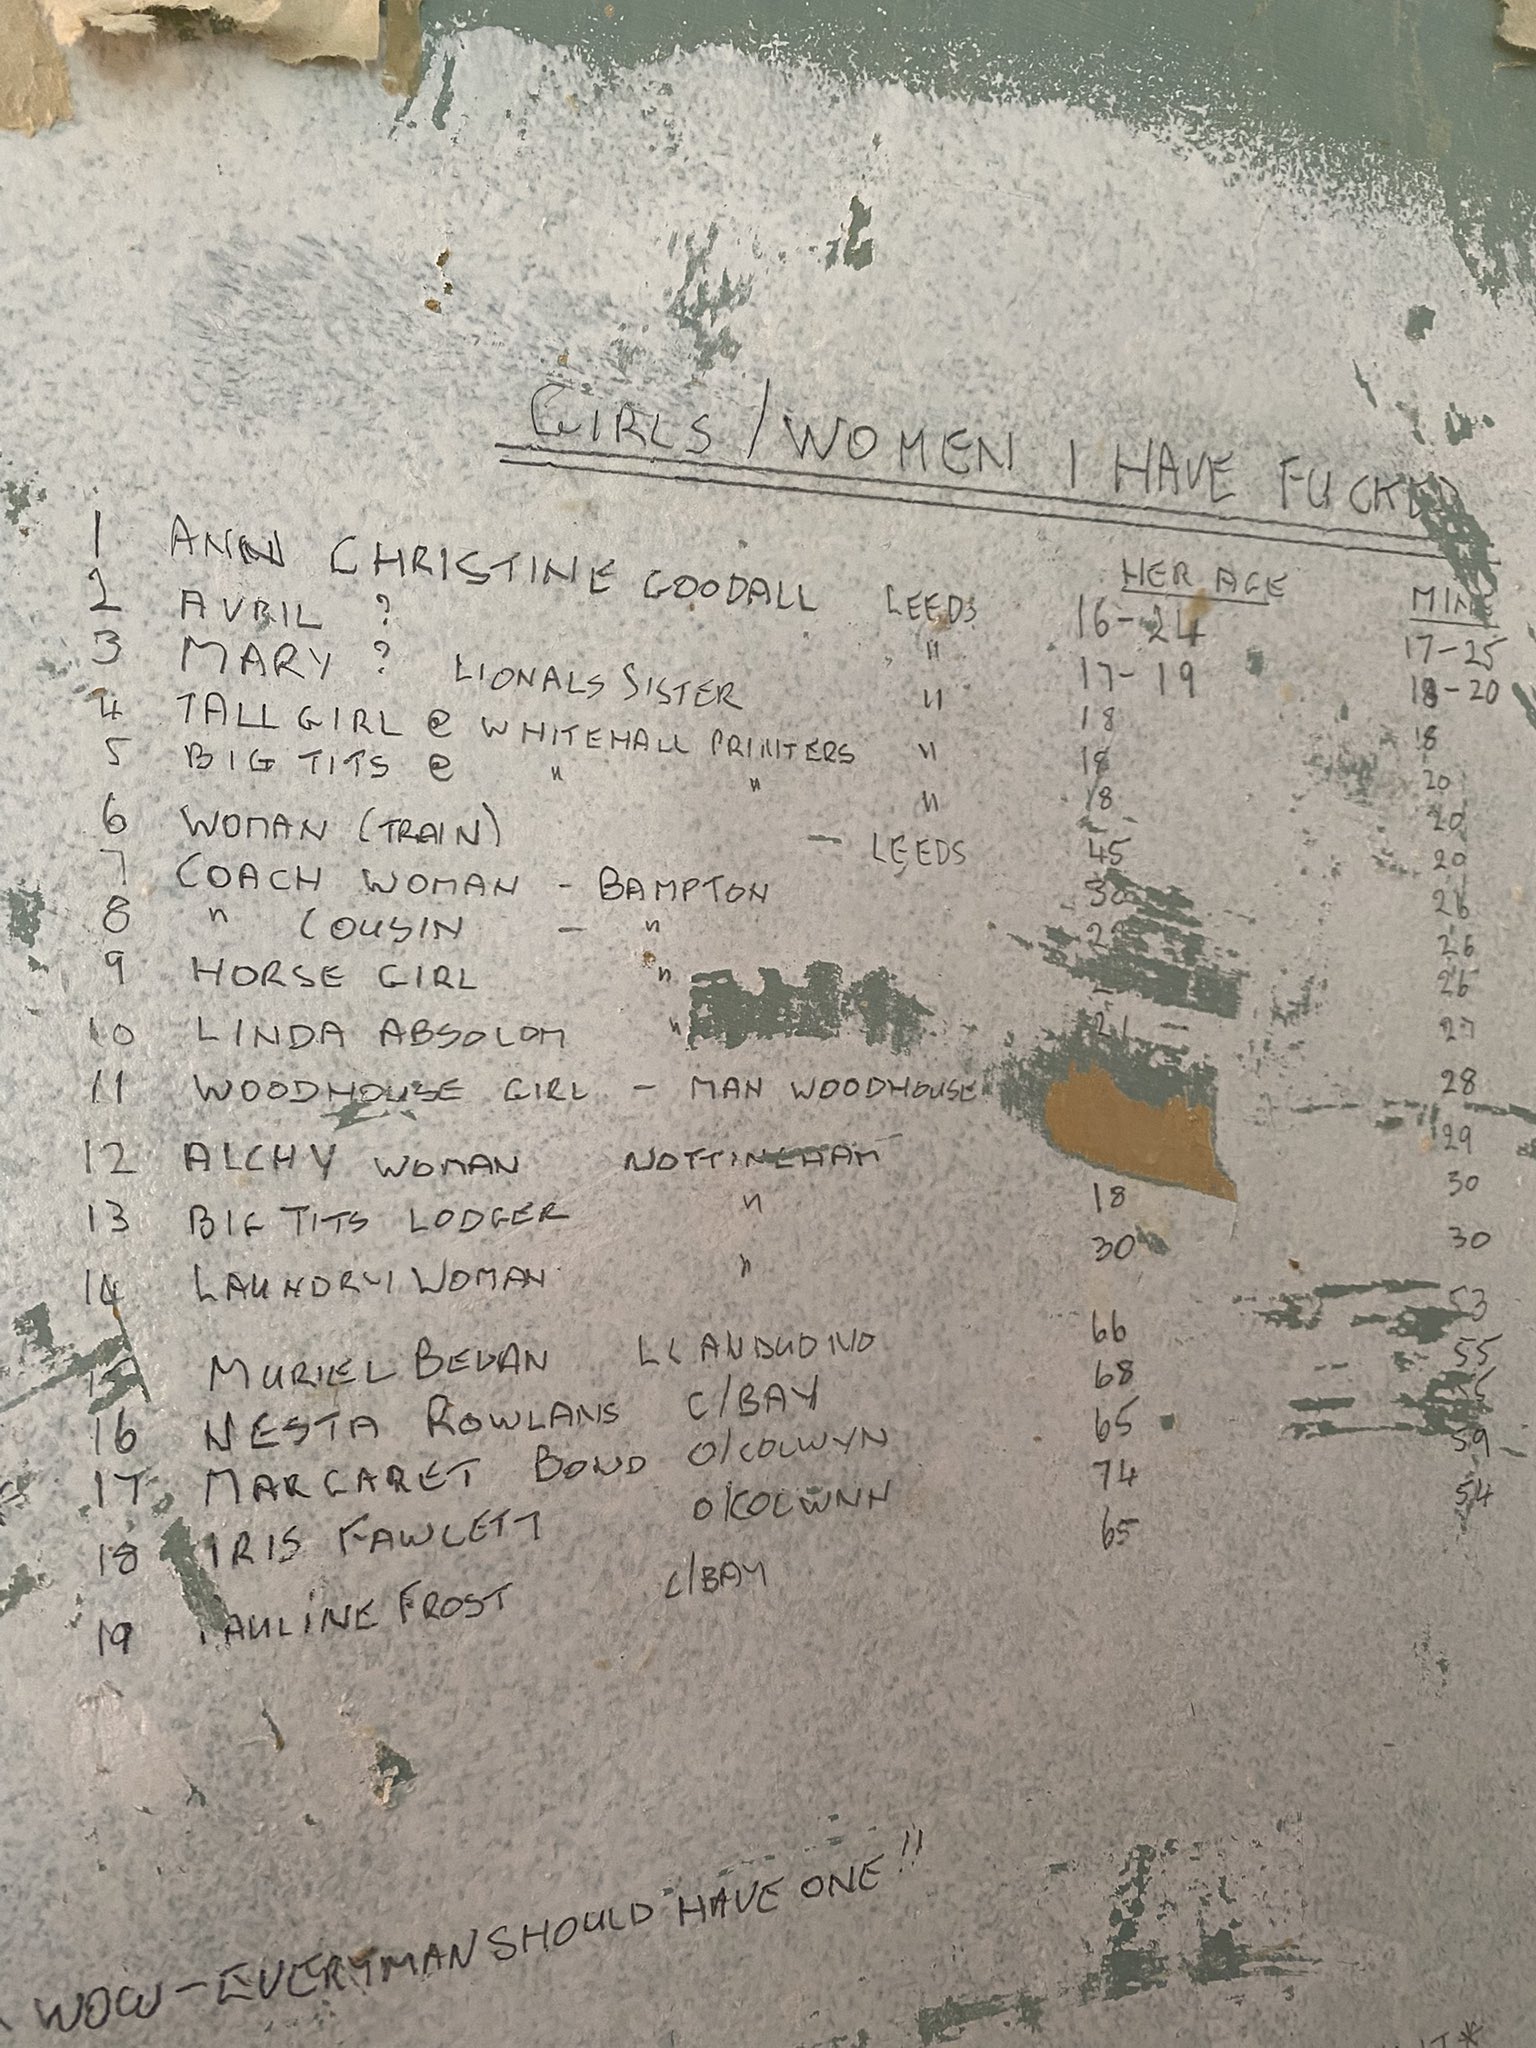 GIRLS / WOMEN I HAVE FUCKED
HER AGE MINE
1 ANN CHRISTINE GOODALL LEEDS 16-24 17-25
2 AVRIL ? " 17-19 18-20
3 MARY ? LIONALS SISTER " 18 18
4 TALL GIRL @ WHITEHALL PRINTERS " 18 20
5 BIG TITS @ " " " 18 20
6 WOMAN (TRAIN) - LEEDS 45 20
7 COACH WOMAN - BAMPTON 30 26
8 " COUSIN - " 26
9 HORSE GIRL " 26
10 LINDA ABSOLOM " 21 27
11 WOODHOUSE GIRL - MAN WOODHOUSE 28
12 ALCHY WOMAN NOTTINGHAM 29
13 BIG TITS LODGER " 18 30
14 LAUNDRY WOMAN " 30 30
15 MURIEL BEVAN LLANDUDNO 66 53
16 NESTA ROWLANS C/BAY 68 55
17 MARGARET BOND O/COLWYN 65
18 IRIS FAWLETT O/COLWNN 74 59
19 PAULINE FROST C/BAY 65 54
WOW - EVERYMAN SHOULD HAVE ONE!!